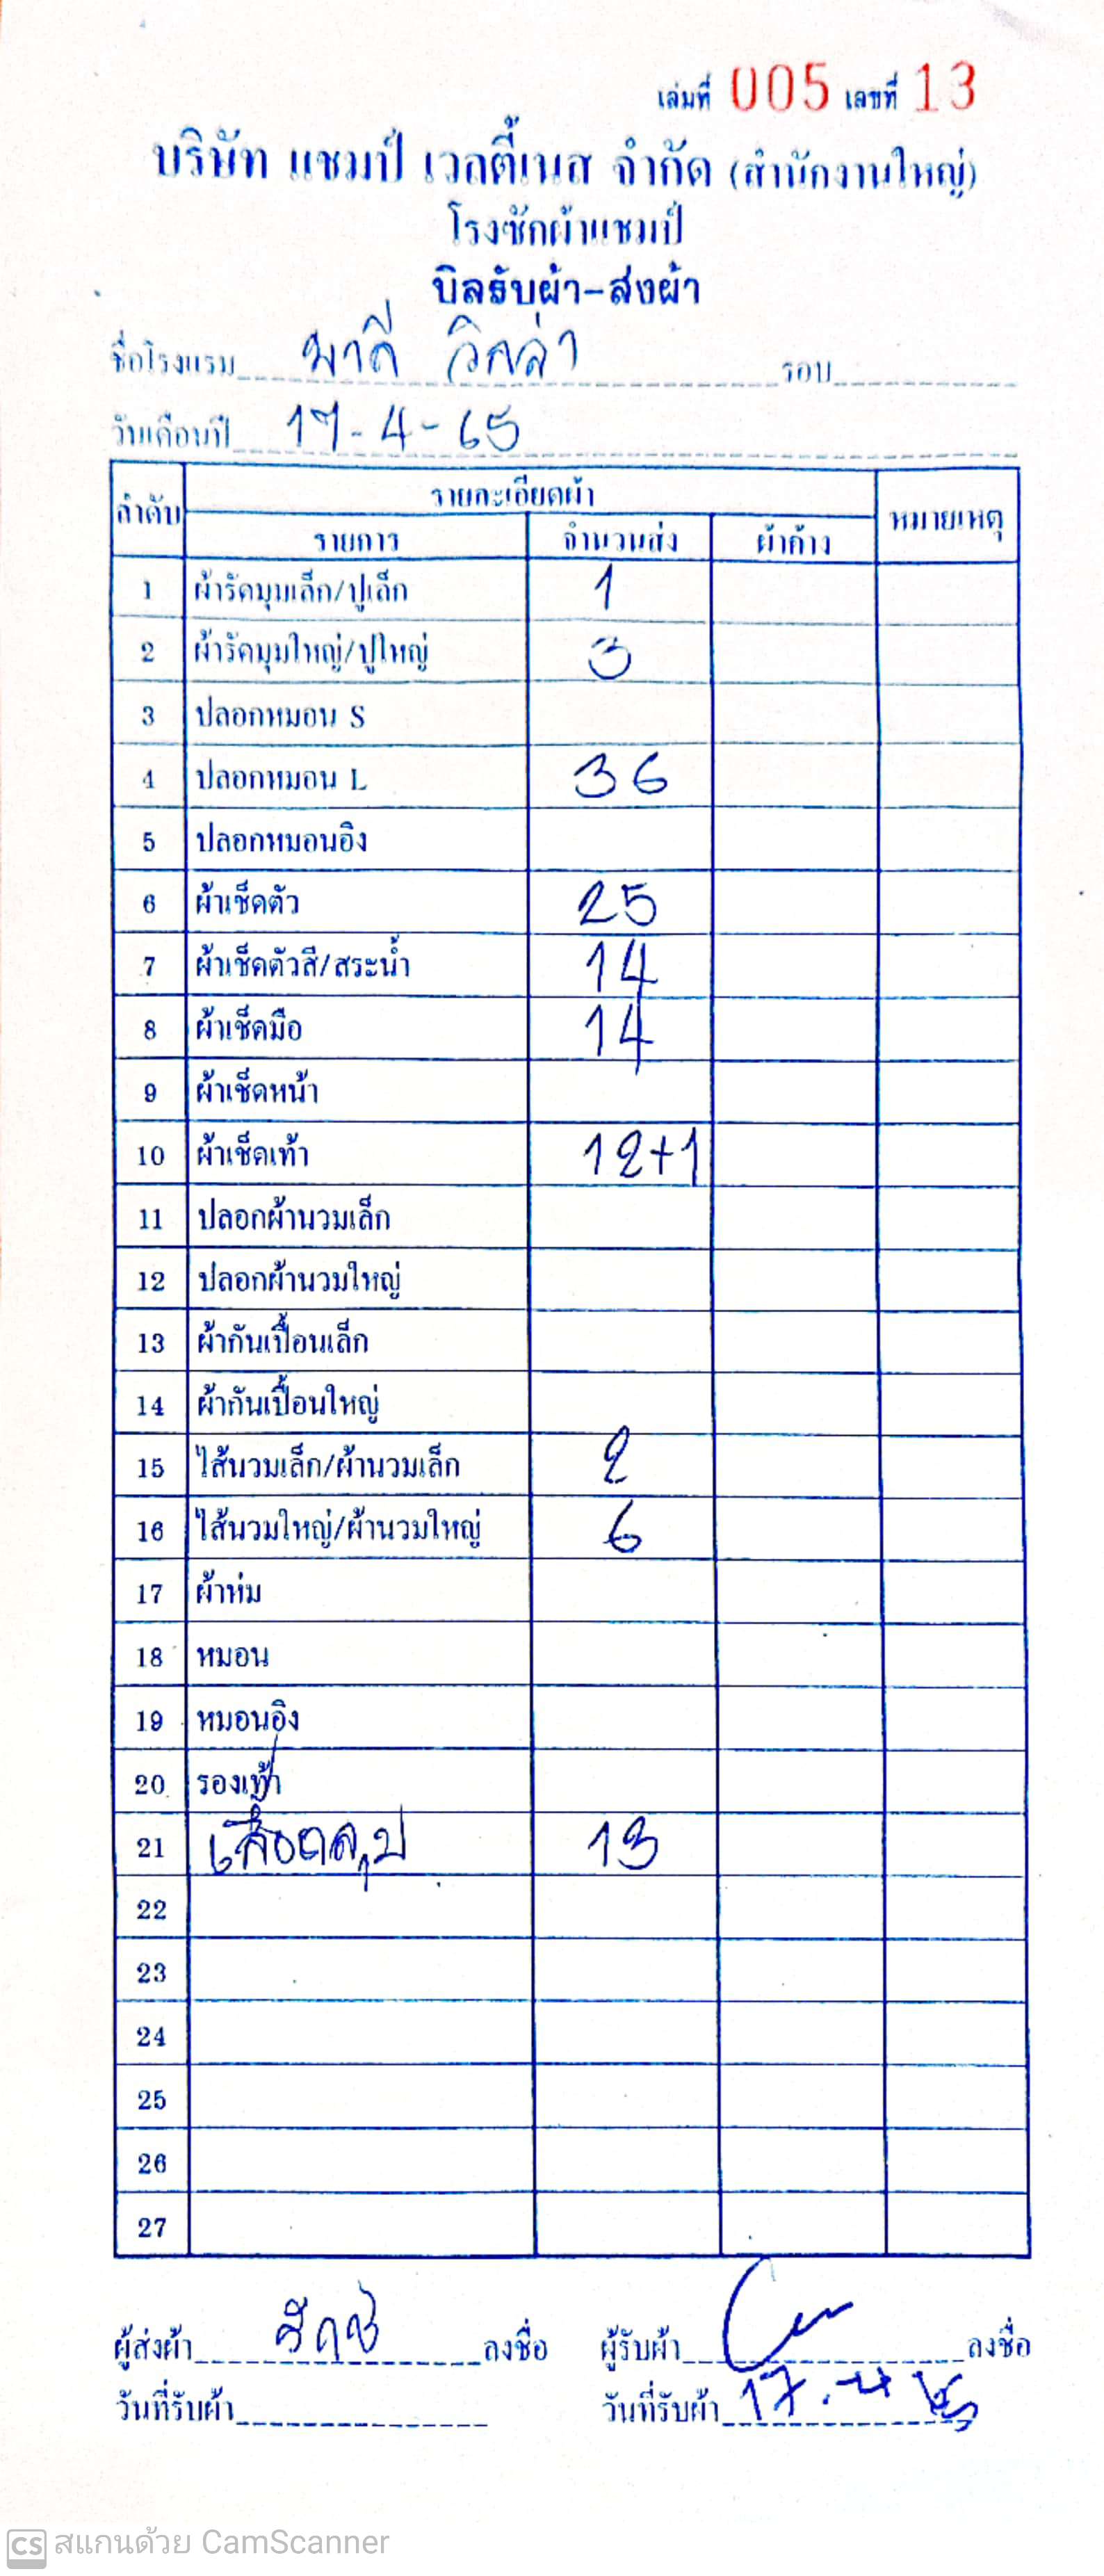 เล่มที่ 005 เลขที่ 13
บริษัท แชมป์ เวลตี้เนส จำกัด (สำนักงานใหญ่)
โรงซักผ้าแชมป์
บิลรับผ้า-ส่งผ้า
ชื่อโรงแรม มาลี วิลล่า รอบ
วันเดือนปี 17-4-65
ลำดับ รายละเอียดผ้า หมายเหตุ
รายการ จำนวนส่ง ผ้าค้าง
1 ผ้ารัดมุมเล็ก/ปูเล็ก 1
2 ผ้ารัดมุมใหญ่/ปูใหญ่ 3
3 ปลอกหมอน S
4 ปลอกหมอน L 36
5 ปลอกหมอนอิง
6 ผ้าเช็ดตัว 25
7 ผ้าเช็ดตัวสี/สระน้ำ 14
8 ผ้าเช็ดมือ 14
9 ผ้าเช็ดหน้า
10 ผ้าเช็ดเท้า 12+1
11 ปลอกผ้านวมเล็ก
12 ปลอกผ้านวมใหญ่
13 ผ้ากันเปื้อนเล็ก
14 ผ้ากันเปื้อนใหญ่
15 ไส้นวมเล็ก/ผ้านวมเล็ก 2
16 ไส้นวมใหญ่/ผ้านวมใหญ่ 6
17 ผ้าห่ม
18 หมอน
19 หมอนอิง
20 รองเท้า
21 เสื้อคลุม 13
22
23
24
25
26
27
ผู้ส่งผ้า ลงชื่อ ผู้รับผ้า ลงชื่อ
วันที่รับผ้า วันที่รับผ้า 17
CS สแกนด้วย CamScanner